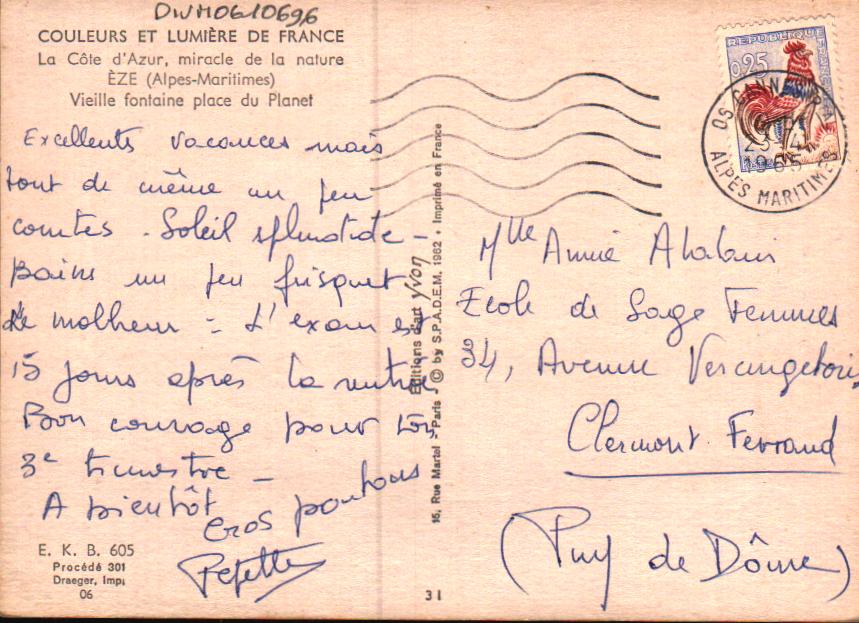 DIVM0610696
COULEURS ET LUMIÈRE DE FRANCE
La Côte d'Azur, miracle de la nature
ÈZE (Alpes-Maritimes)
Vieille fontaine place du Planet
Excellentes vacances mais
tout de même un peu
courtes - Soleil splendide -
Bains un peu frisquet
de malheur = L'exam est
15 jours après la rentrée
Bon courage pour ton
3e trimestre -
A bientôt
Gros poutous
Pepette
E. K. B. 605
Procédé 301
Draeger, Imp.
06
15, Rue Martel - Paris - © by S.P.A.D.E.M. 1962 • Imprimé en France
Editions d'art Yvon
31
REPUBLIQUE FRANÇAISE
0,25
CANNES
1965
ALPES MARITIMES
Mlle Annie
Ecole de Sage Femmes
34, Avenue Vercingetorix
Clermont Ferrand
(Puy de Dôme)